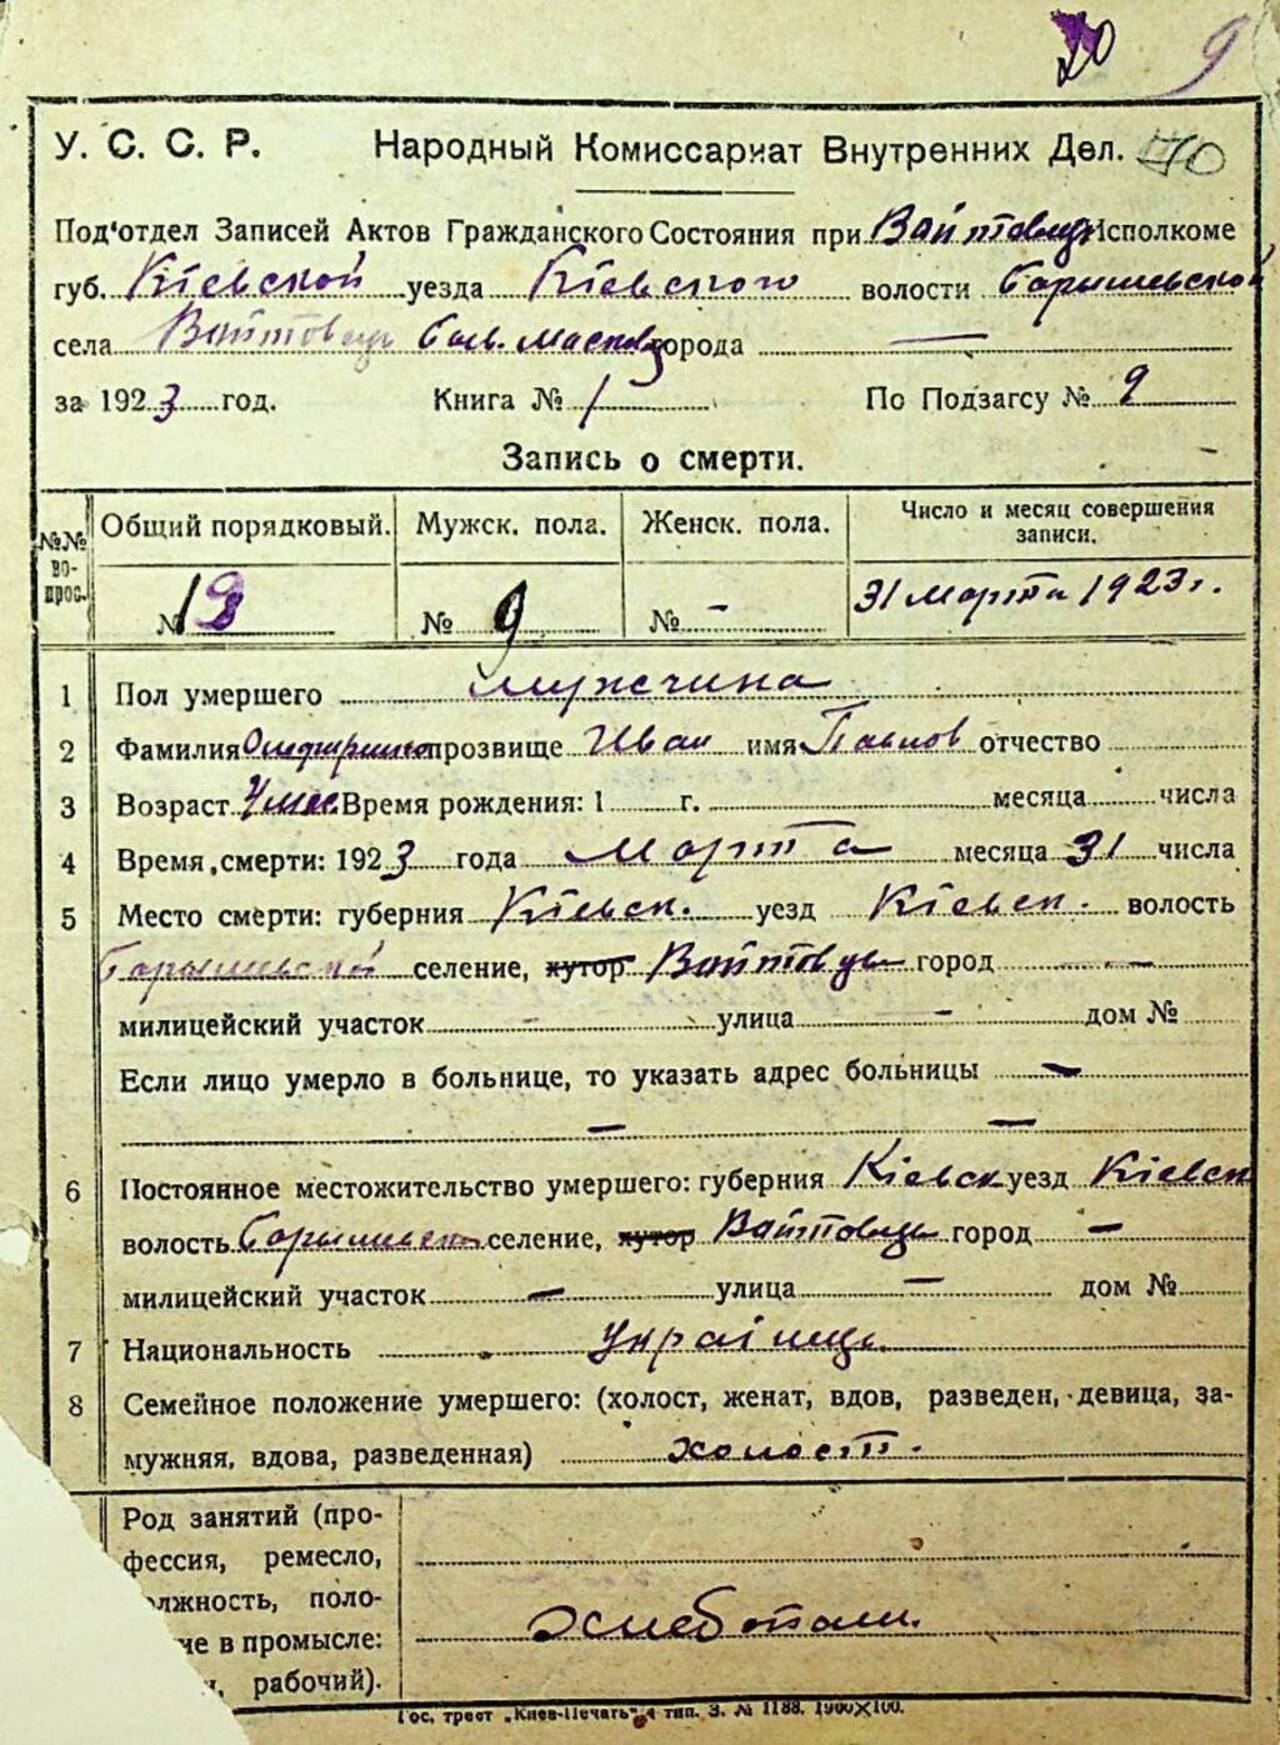 20 9
У. С. С. Р. Народный Комиссариат Внутренних Дел. 70
Под'отдел Записей Актов Гражданского Состояния при Войтовц. Исполкоме
губ. Кіевской уезда Кіевского волости Барышевской
села Войтовцы города —
за 1923 год. Книга № 1 По Подзагсу № 9
Запись о смерти.
№№ вопрос. Общий порядковый. Мужск. пола. Женск. пола. Число и месяц совершения записи.
№ № 9 № - 31 Марта 1923 г.
1 Пол умершего мужчина
2 Фамилия прозвище Иван имя Павлов отчество
3 Возраст Время рождения: 1 г. месяца числа
4 Время смерти: 1923 года Марта месяца 31 числа
5 Место смерти: губерния Кіевск. уезд Кіевск. волость
Барышевской селение, хутор Войтовцы город —
милицейский участок - улица - дом №
Если лицо умерло в больнице, то указать адрес больницы —
— —
6 Постоянное местожительство умершего: губерния Кіевск уезд Кіевск
волость Барышевск селение, хутор Войтовцы город —
милицейский участок — улица — дом №
7 Национальность Украінец
8 Семейное положение умершего: (холост, женат, вдов, разведен, девица, за-
мужняя, вдова, разведенная) холост.
Род занятий (про-
фессия, ремесло,
лжность, поло-
ие в промысле:
н, рабочий).
Гос. трест „Киев-Печать" 4 тип. З. № 1188. 1900×100.